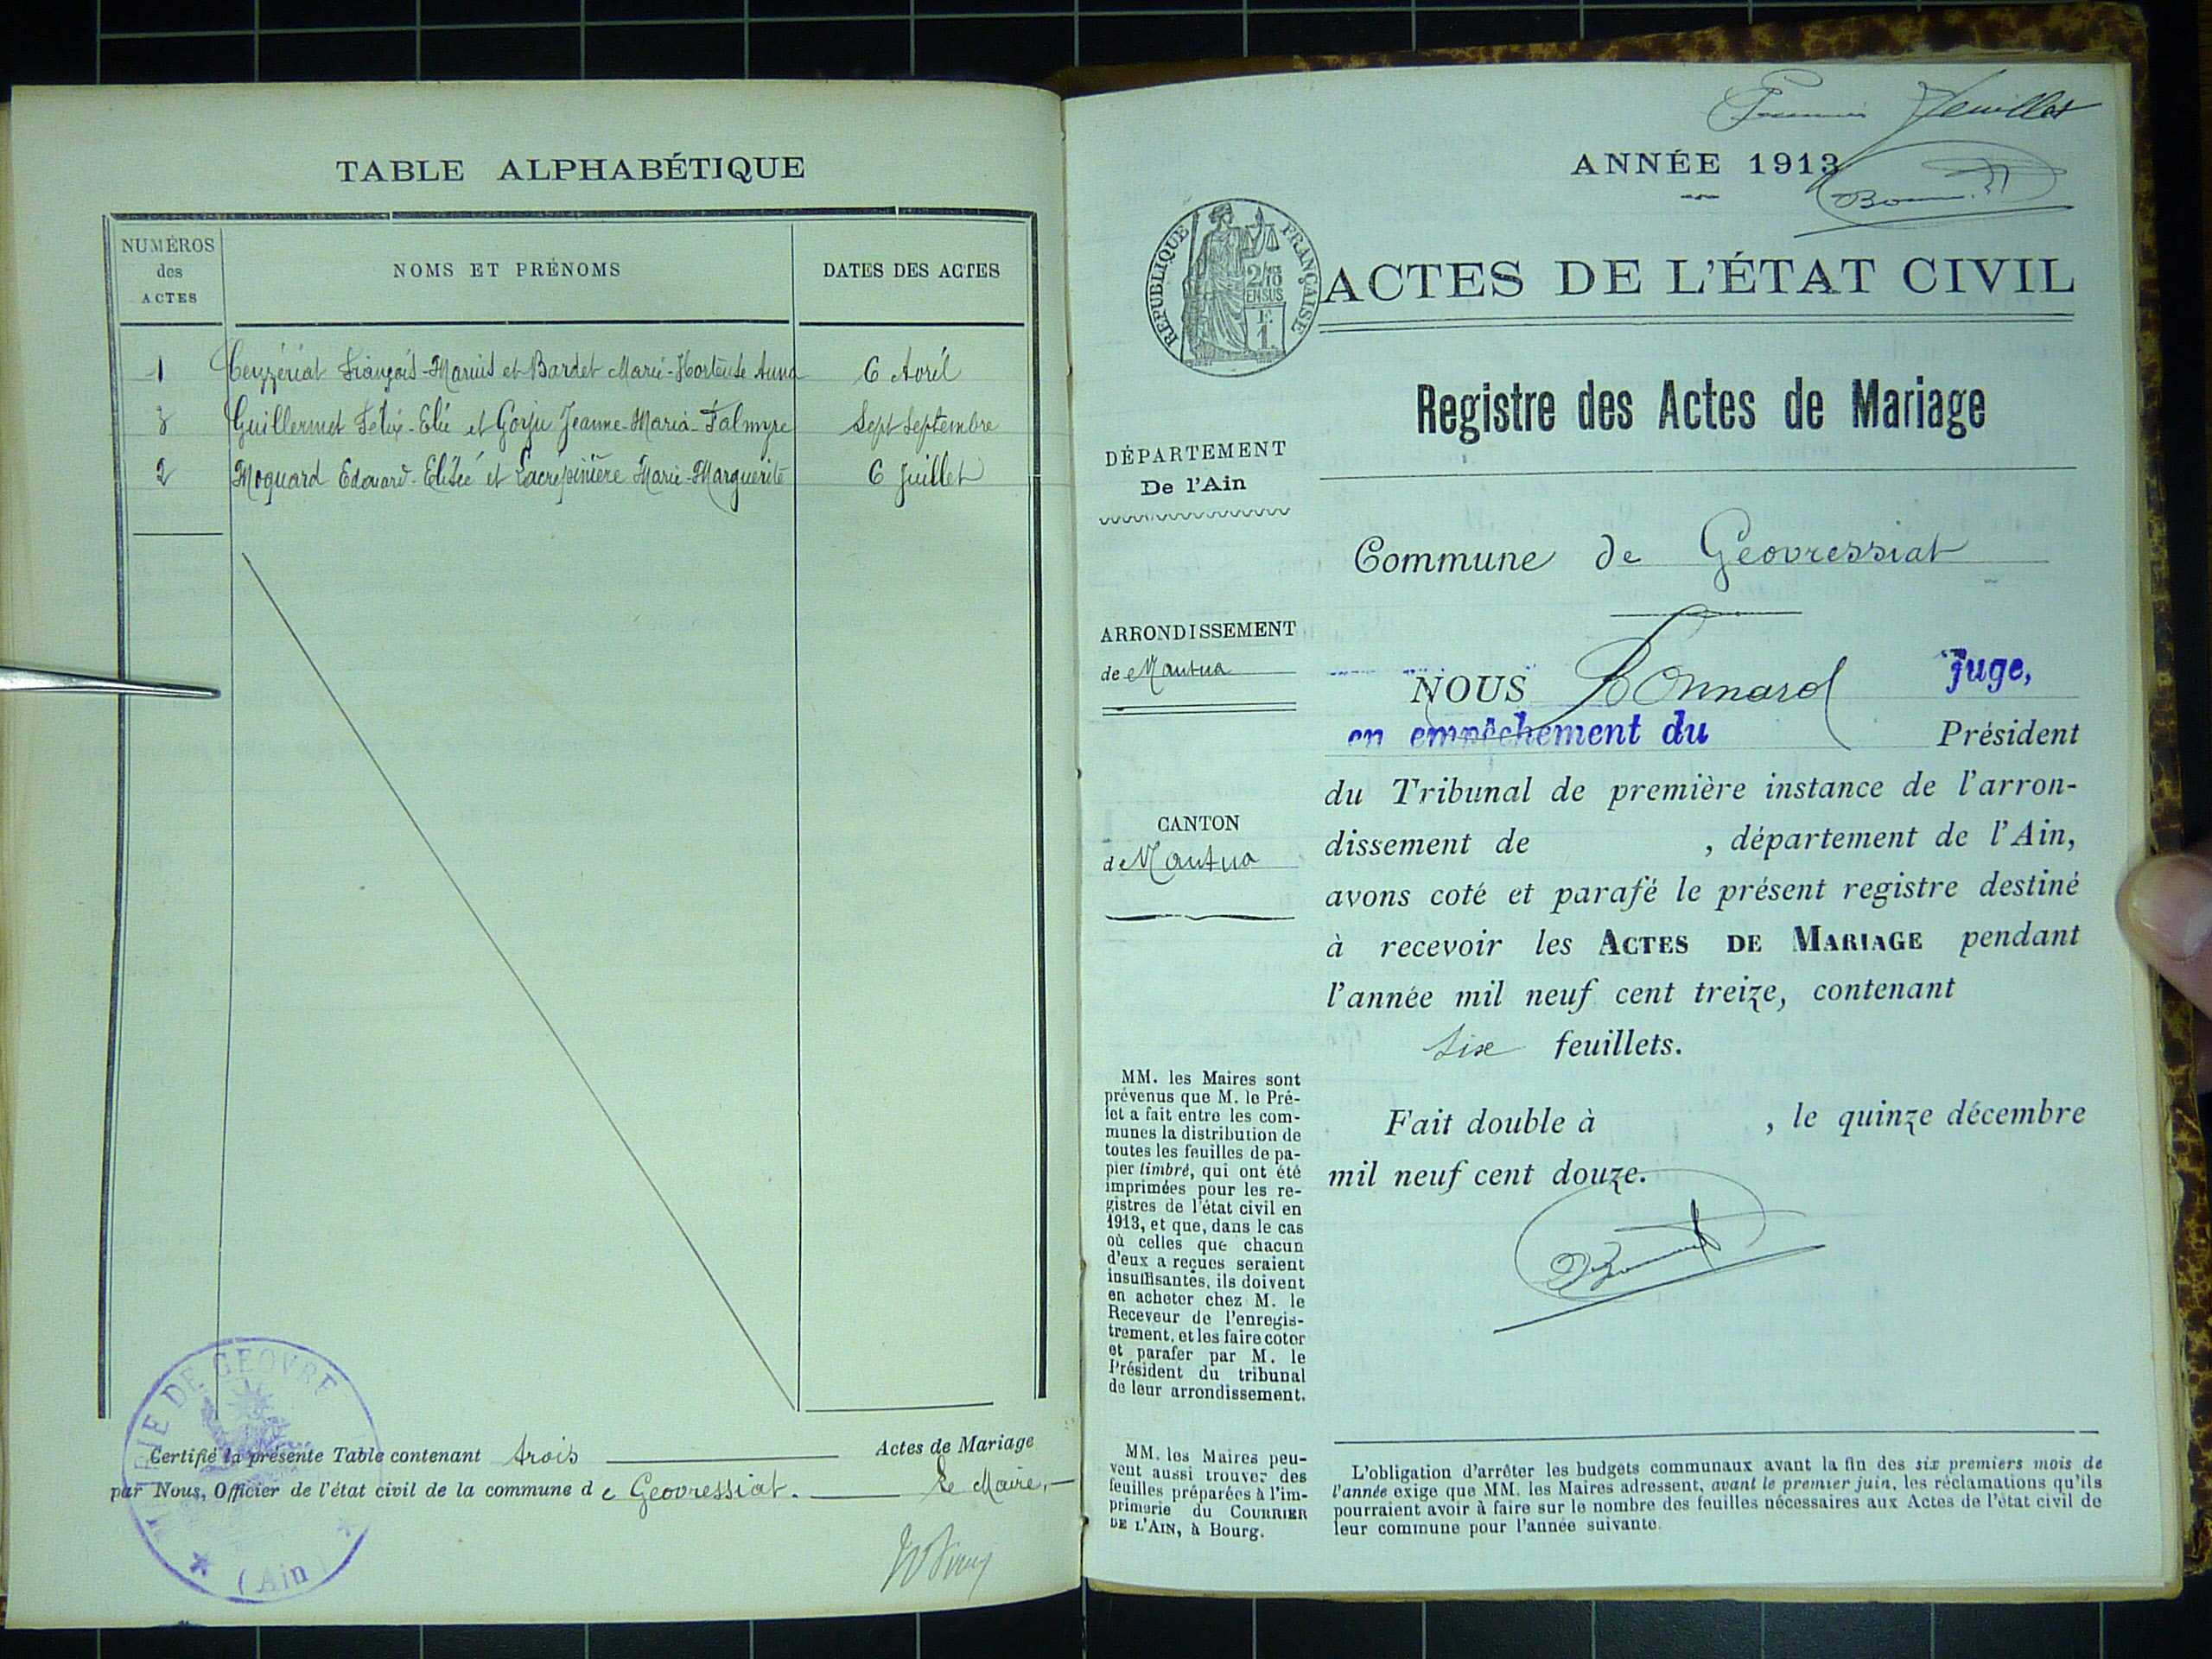 TABLE ALPHABÉTIQUE
NUMÉROS
des
ACTES
NOMS ET PRÉNOMS
DATES DES ACTES
1 Ceyzériat François-Marius et Bardet Marie-Hortense Anna 6 Avril
3 Guillermet Félix-Elie et Gorju Jeanne-Maria-Palmyre Sept Septembre
2 Moquard Edouard-Elisée et Lacrépinière Marie-Marguerite 6 Juillet
MAIRIE DE GEOVRE
(Ain)
Certifié la présente Table contenant trois Actes de Mariage
par Nous, Officier de l'état civil de la commune de Géovressiat. Le Maire,
Premier Feuillet
ANNÉE 1913
RÉPUBLIQUE FRANÇAISE
2/10
EN SUS
F.
1.
ACTES DE L'ÉTAT CIVIL
Registre des Actes de Mariage
DÉPARTEMENT
De l'Ain
Commune de Géovressiat
ARRONDISSEMENT
de Nantua
NOUS Bonnard Juge,
en empêchement du Président
du Tribunal de première instance de l'arron-
dissement de , département de l'Ain,
avons coté et parafé le présent registre destiné
à recevoir les ACTES DE MARIAGE pendant
l'année mil neuf cent treize, contenant
six feuillets.
Fait double à , le quinze décembre
mil neuf cent douze.
CANTON
de Nantua
MM. les Maires sont
prévenus que M. le Pré-
fet a fait entre les com-
munes la distribution de
toutes les feuilles de pa-
pier timbré, qui ont été
imprimées pour les re-
gistres de l'état civil en
1913, et que, dans le cas
où celles que chacun
d'eux a reçues seraient
insuffisantes, ils doivent
en acheter chez M. le
Receveur de l'enregis-
trement, et les faire coter
et parafer par M. le
Président du tribunal
de leur arrondissement.
MM. les Maires peu-
vent aussi trouver des
feuilles préparées à l'im-
primerie du COURRIER
DE L'AIN, à Bourg.
L'obligation d'arrêter les budgets communaux avant la fin des six premiers mois de
l'année exige que MM. les Maires adressent, avant le premier juin, les réclamations qu'ils
pourraient avoir à faire sur le nombre des feuilles nécessaires aux Actes de l'état civil de
leur commune pour l'année suivante.